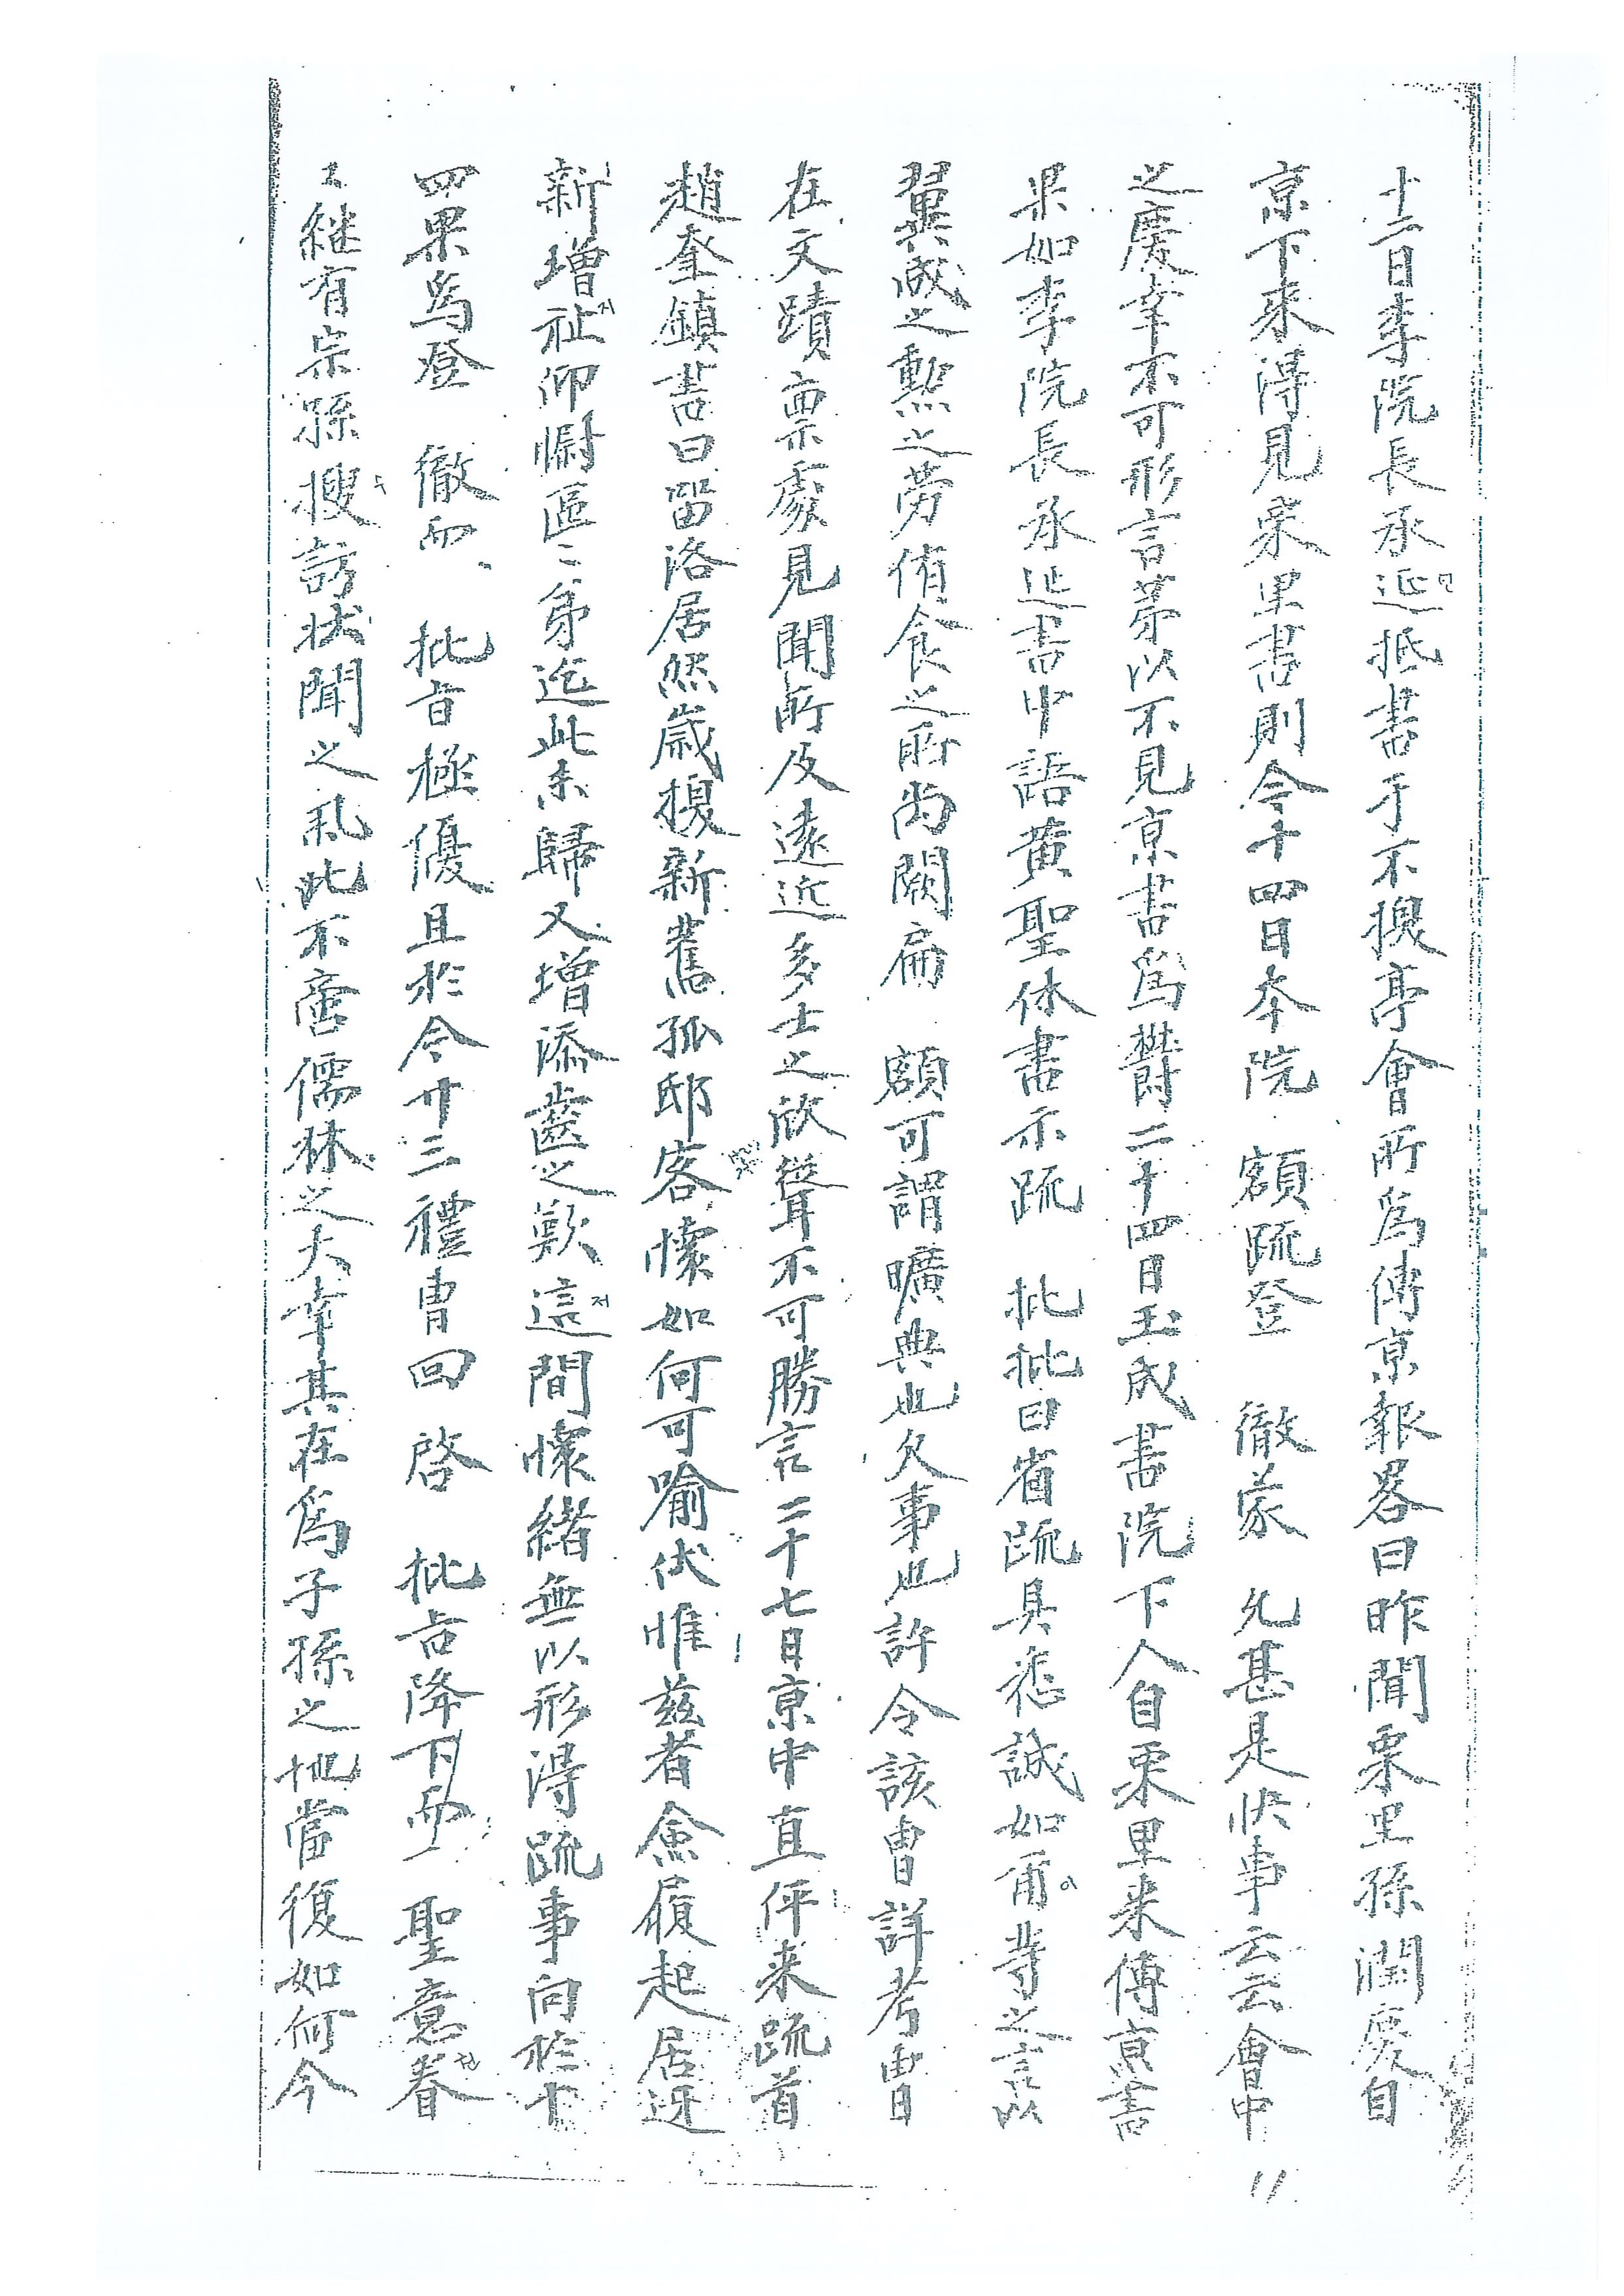 十二日李院長承延抵書于不換亭會所爲傳京報畧曰昨聞栗里孫潤慶自
京下來得見栗里書則今十四日本院 額疏登 徹蒙 允甚是快事云云會中
之慶幸不可形言第以不見京書爲欝二十四日玉成書院下人自栗里来傳京書
果如李院長承延書中語黄聖休書示疏 批批曰省疏具悉誠如爾等之言以
翼成之勲之勞侑食之所尚闕扁 額可謂曠典也欠事也許令該曹詳考曹
在文蹟禀處見聞所及遠近多士之欣聳不可勝言二十七日京中直伻来疏首
趙奎鎮書曰留洛居然歲換新舊孤邸客懷如何可喻伏惟兹者僉履起居迓
新增祉仰慰區〻弟迄此未歸又增添齒之歎這間懷緒無以形得疏事向於十
四果爲登 徹而 批旨極優且於今廿三禮曹回 啓 批旨降下而 聖意眷
〻継有宗孫搜訪状聞之 此不啻儒林之大幸其在爲子孫之地當復如何今
11